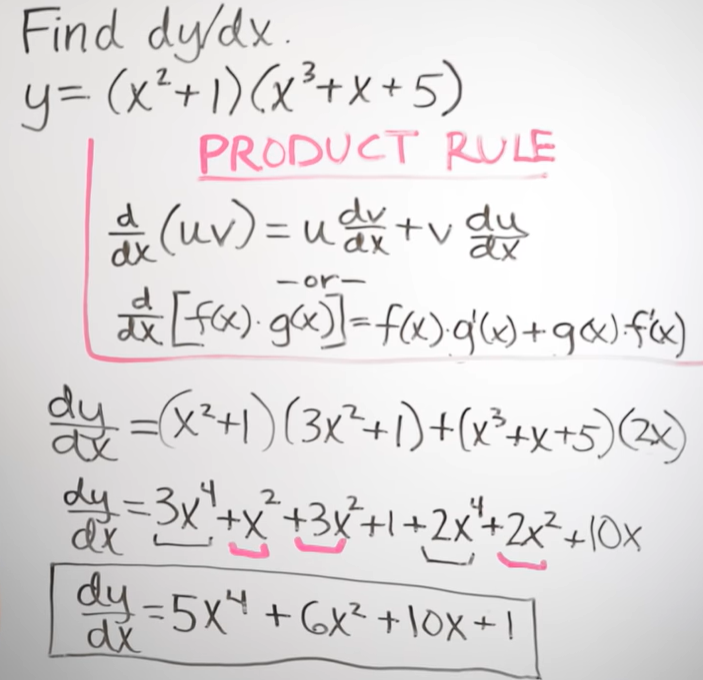 Find dy/dx.
y = (x²+1)(x³+x+5)
PRODUCT RULE
d/dx (uv) = u dv/dx + v du/dx
-or-
d/dx [f(x)·g(x)] = f(x)·g'(x)+g(x)·f'(x)
dy/dx = (x²+1)(3x²+1)+(x³+x+5)(2x)
dy/dx = 3x⁴+x²+3x²+1+2x⁴+2x²+10x
dy/dx = 5x⁴ + 6x² + 10x + 1